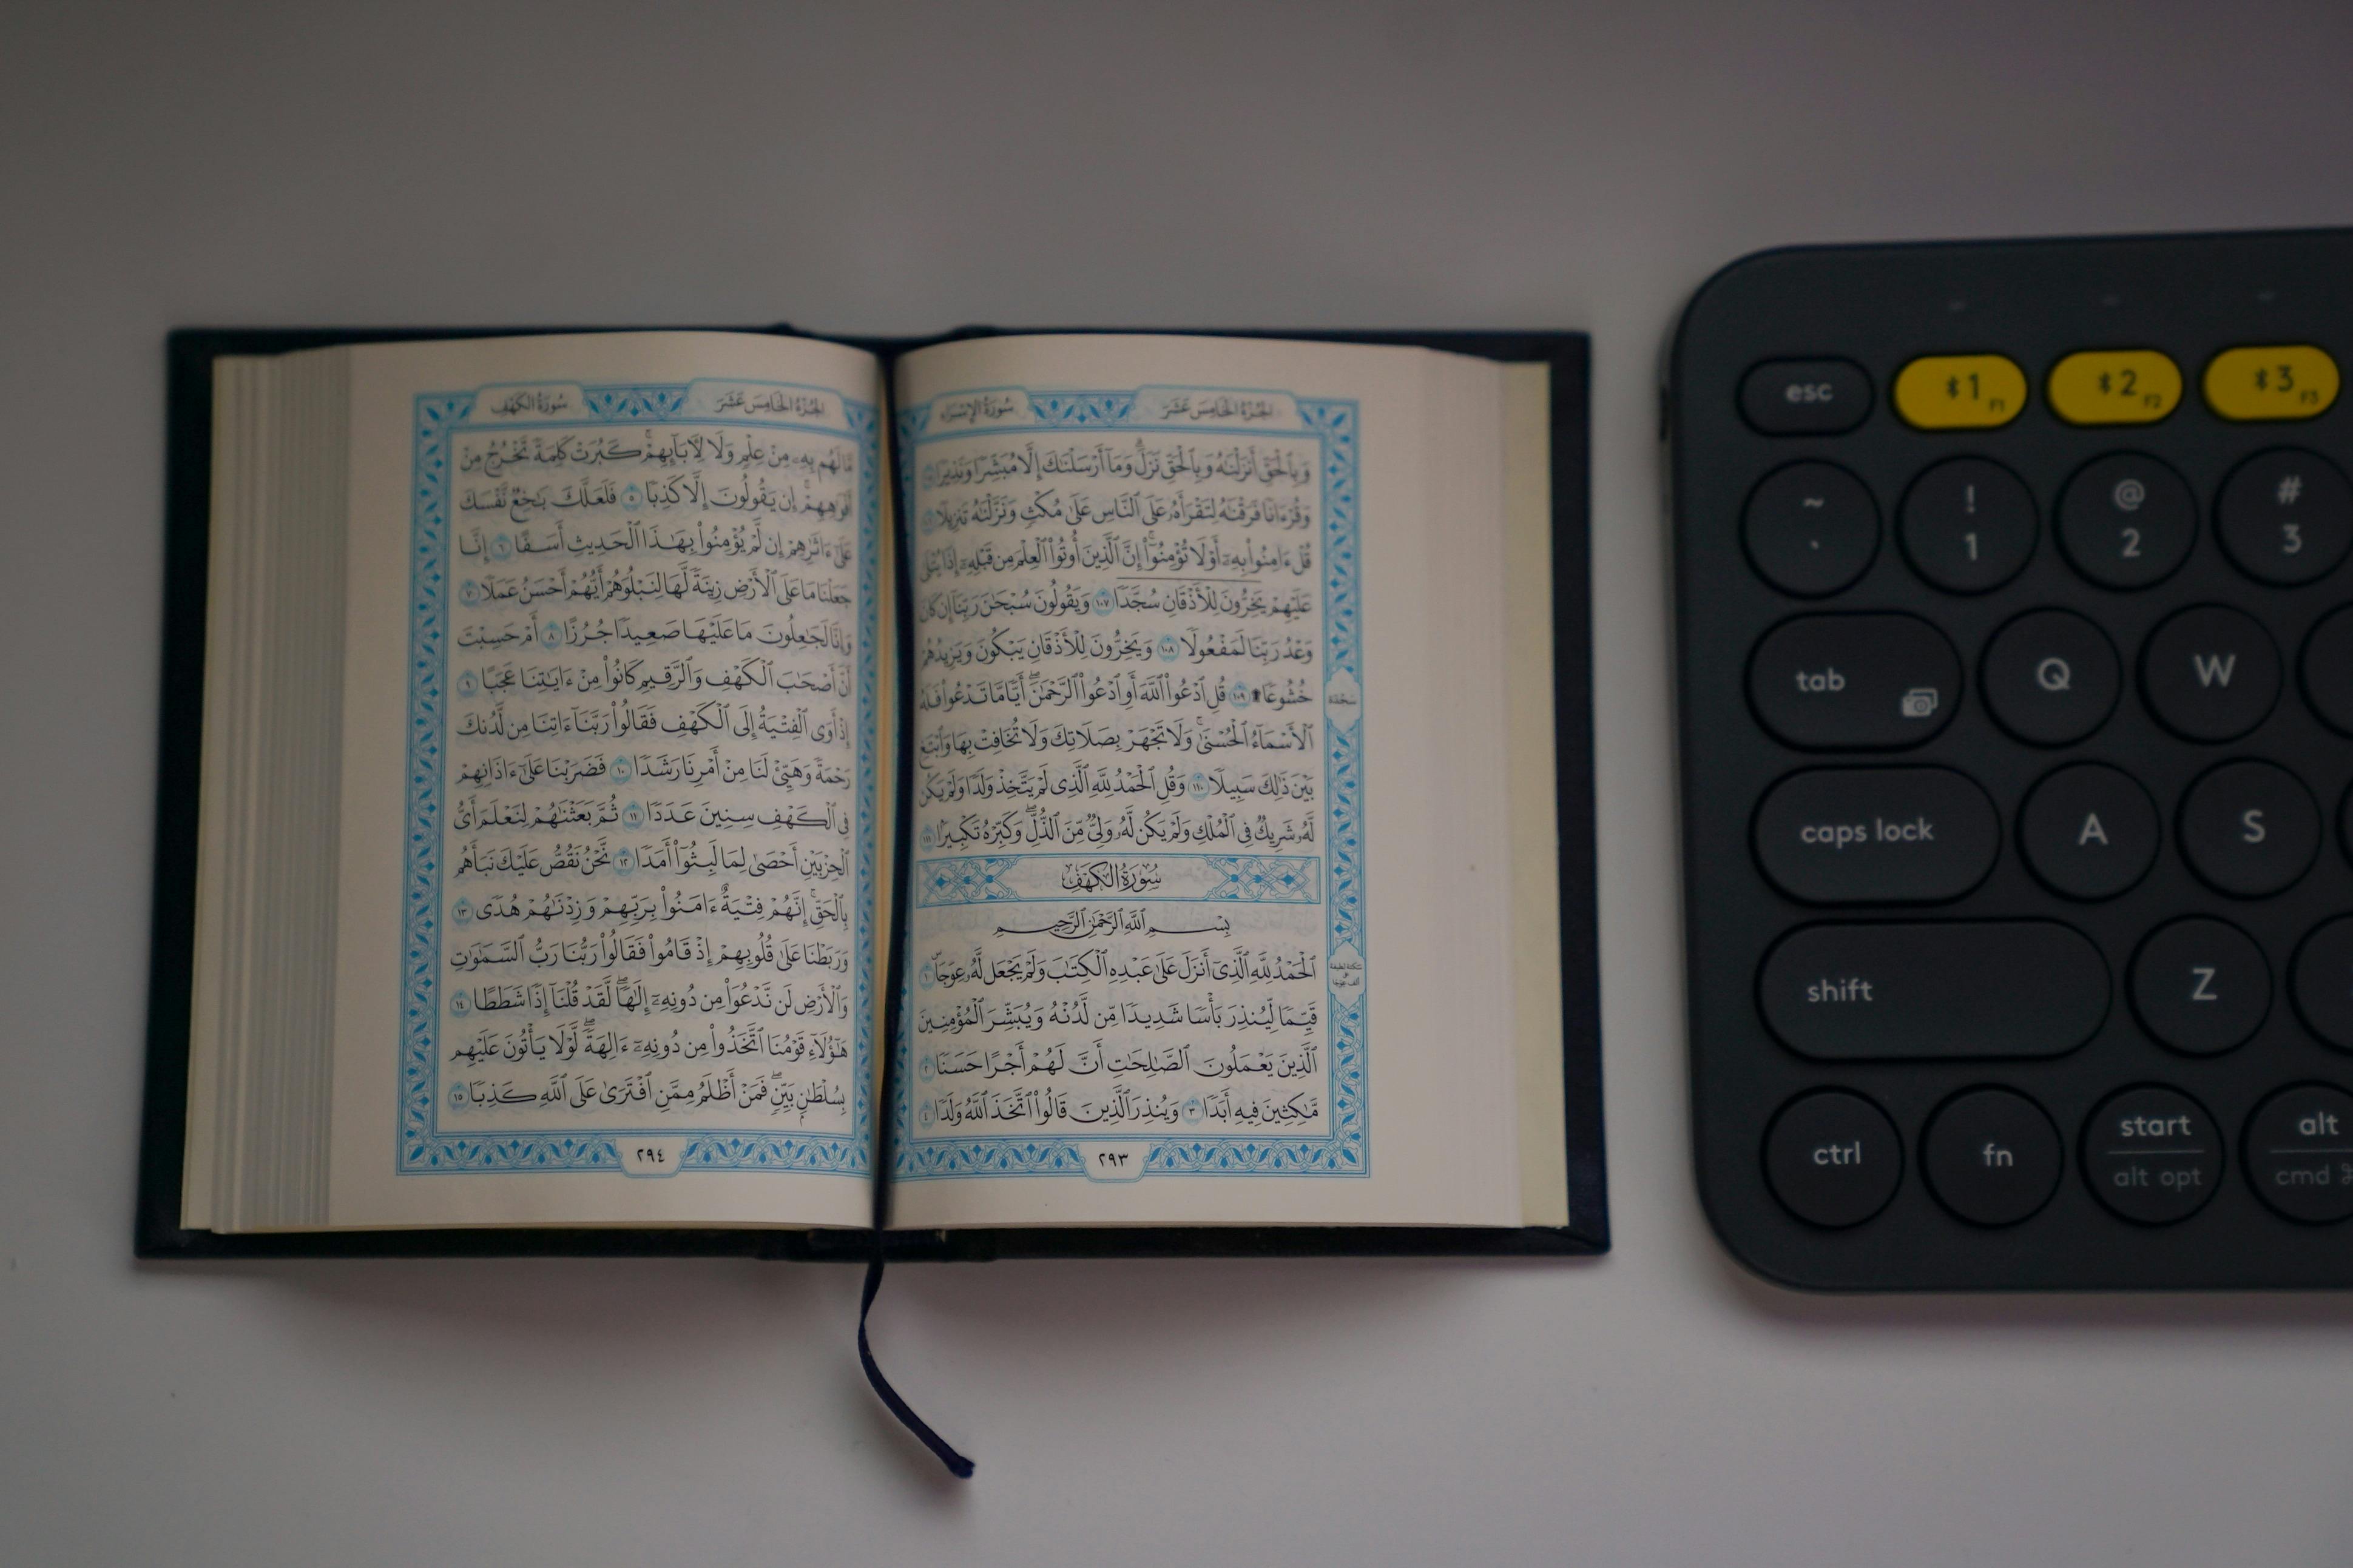 الجزء الخامس عشر
سورة الإسراء
وَبِٱلۡحَقِّ أَنزَلۡنَٰهُ وَبِٱلۡحَقِّ نَزَلَۗ وَمَآ أَرۡسَلۡنَٰكَ إِلَّا مُبَشِّرٗا وَنَذِيرٗا ١٠٥
وَقُرۡءَانٗا فَرَقۡنَٰهُ لِتَقۡرَأَهُۥ عَلَى ٱلنَّاسِ عَلَىٰ مُكۡثٖ وَنَزَّلۡنَٰهُ تَنزِيلٗا ١٠٦
قُلۡ ءَامِنُواْ بِهِۦٓ أَوۡ لَا تُؤۡمِنُوٓاْۚ إِنَّ ٱلَّذِينَ أُوتُواْ ٱلۡعِلۡمَ مِن قَبۡلِهِۦٓ إِذَا يُتۡلَىٰ
عَلَيۡهِمۡ يَخِرُّونَۤ لِلۡأَذۡقَانِۤ سُجَّدٗاۤ ١٠٧ وَيَقُولُونَ سُبۡحَٰنَ رَبِّنَآ إِن كَانَ
وَعۡدُ رَبِّنَا لَمَفۡعُولٗا ١٠٨ وَيَخِرُّونَ لِلۡأَذۡقَانِ يَبۡكُونَ وَيَزِيدُهُمۡ
خُشُوعٗا۩ ١٠٩ قُلِ ٱدۡعُواْ ٱللَّهَ أَوِ ٱدۡعُواْ ٱلرَّحۡمَٰنَۖ أَيّٗا مَّا تَدۡعُواْ فَلَهُ
ٱلۡأَسۡمَآءُ ٱلۡحُسۡنَىٰۚ وَلَا تَجۡهَرۡ بِصَلَاتِكَ وَلَا تُخَافِتۡ بِهَا وَٱبۡتَغِ
بَيۡنَ ذَٰلِكَ سَبِيلٗا ١١٠ وَقُلِ ٱلۡحَمۡدُ لِلَّهِ ٱلَّذِي لَمۡ يَتَّخِذۡ وَلَدٗا وَلَمۡ يَكُن
لَّهُۥ شَرِيكٞ فِي ٱلۡمُلۡكِ وَلَمۡ يَكُن لَّهُۥ وَلِيّٞ مِّنَ ٱلذُّلِّۖ وَكَبِّرۡهُ تَكۡبِيرَۢا ١١١
سُورَةُ الكَهۡفِ
بِسۡمِ ٱللَّهِ ٱلرَّحۡمَٰنِ ٱلرَّحِيمِ
ٱلۡحَمۡدُ لِلَّهِ ٱلَّذِيٓ أَنزَلَ عَلَىٰ عَبۡدِهِ ٱلۡكِتَٰبَ وَلَمۡ يَجۡعَل لَّهُۥ عِوَجَاۜ ١
قَيِّمٗا لِّيُنذِرَ بَأۡسٗا شَدِيدٗا مِّن لَّدُنۡهُ وَيُبَشِّرَ ٱلۡمُؤۡمِنِينَ
ٱلَّذِينَ يَعۡمَلُونَ ٱلصَّٰلِحَٰتِ أَنَّ لَهُمۡ أَجۡرًا حَسَنٗا ٢
مَّٰكِثِينَ فِيهِ أَبَدٗا ٣ وَيُنذِرَ ٱلَّذِينَ قَالُواْ ٱتَّخَذَ ٱللَّهُ وَلَدٗا ٤
سجدة
٢٩٣
الجزء الخامس عشر
سورة الكهف
مَّا لَهُم بِهِۦ مِنۡ عِلۡمٖ وَلَا لِأٓبَآئِهِمۡۚ كَبُرَتۡ كَلِمَةٗ تَخۡرُجُ مِنۡ
أَفۡوَٰهِهِمۡۚ إِن يَقُولُونَ إِلَّا كَذِبٗا ٥ فَلَعَلَّكَ بَٰخِعٞ نَّفۡسَكَ
عَلَىٰٓ ءَاثَٰرِهِمۡ إِن لَّمۡ يُؤۡمِنُواْ بِهَٰذَا ٱلۡحَدِيثِ أَسَفًا ٦ إِنَّا
جَعَلۡنَا مَا عَلَى ٱلۡأَرۡضِ زِينَةٗ لَّهَا لِنَبۡلُوَهُمۡ أَيُّهُمۡ أَحۡسَنُ عَمَلٗا ٧
وَإِنَّا لَجَٰعِلُونَ مَا عَلَيۡهَا صَعِيدٗا جُرُزًا ٨ أَمۡ حَسِبۡتَ
أَنَّ أَصۡحَٰبَ ٱلۡكَهۡفِ وَٱلرَّقِيمِ كَانُواْ مِنۡ ءَايَٰتِنَا عَجَبًا ٩
إِذۡ أَوَى ٱلۡفِتۡيَةُ إِلَى ٱلۡكَهۡفِ فَقَالُواْ رَبَّنَآ ءَاتِنَا مِن لَّدُنكَ
رَحۡمَةٗ وَهَيِّئۡ لَنَا مِنۡ أَمۡرِنَا رَشَدٗا ١٠ فَضَرَبۡنَا عَلَىٰٓ ءَاذَانِهِمۡ
فِي ٱلۡكَهۡفِ سِنِينَ عَدَدٗا ١١ ثُمَّ بَعَثۡنَٰهُمۡ لِنَعۡلَمَ أَيُّ
ٱلۡحِزۡبَيۡنِ أَحۡصَىٰ لِمَا لَبِثُوٓاْ أَمَدٗا ١٢ نَّحۡنُ نَقُصُّ عَلَيۡكَ نَبَأَهُم
بِٱلۡحَقِّۚ إِنَّهُمۡ فِتۡيَةٌ ءَامَنُواْ بِرَبِّهِمۡ وَزِدۡنَٰهُمۡ هُدٗى ١٣
وَرَبَطۡنَا عَلَىٰ قُلُوبِهِمۡ إِذۡ قَامُواْ فَقَالُواْ رَبُّنَا رَبُّ ٱلسَّمَٰوَٰتِ
وَٱلۡأَرۡضِ لَن نَّدۡعُوَاْ مِن دُونِهِۦٓ إِلَٰهٗاۖ لَّقَدۡ قُلۡنَآ إِذٗا شَطَطًا ١٤
هَٰٓؤُلَآءِ قَوۡمُنَا ٱتَّخَذُواْ مِن دُونِهِۦٓ ءَالِهَةٗۖ لَّوۡلَا يَأۡتُونَ عَلَيۡهِم
بِسُلۡطَٰنِۭ بَيِّنٖۖ فَمَنۡ أَظۡلَمُ مِمَّنِ ٱفۡتَرَىٰ عَلَى ٱللَّهِ كَذِبٗا ١٥
٢٩٤
esc 1 F1 2 F2 3 F3
~ ` ! 1 @ 2 # 3
tab Q W
caps lock A S
shift Z
ctrl fn start alt opt alt cmd ⌘